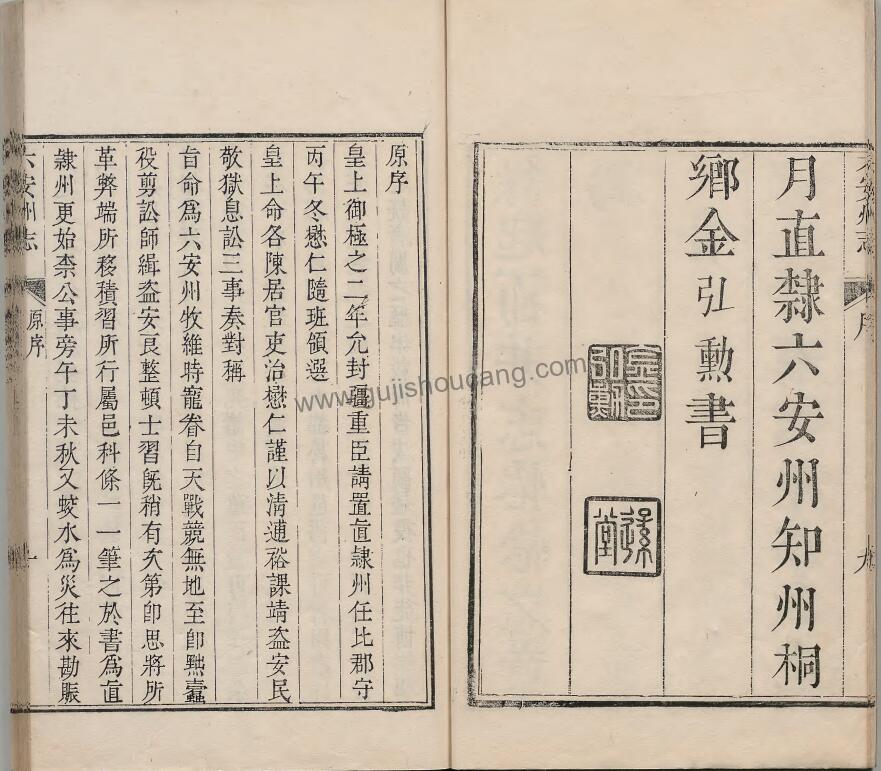 月直隸六安州知州桐
鄉金弘勲書
原序
皇上御極之二年允封疆重臣請置直隸州任比郡守
丙午冬懋仁隨班領選
皇上命各陳居官吏治懋仁謹以清逋裕課靖盗安民
敬獄息訟三事奏對稱
旨命為六安州牧維時寵眷自天戰兢無地至即黜蠹
役剪訟師緝盗安良整頓士習旣稍有次第即思將所
革弊端所移積習所行屬邑科條一一筆之於書為直
隸州更始柰公事旁午丁未秋又蛟水為災往來勘賑
六安州志
原序
一
六安州志
序
九
孫堂
www.gujishoucang.com